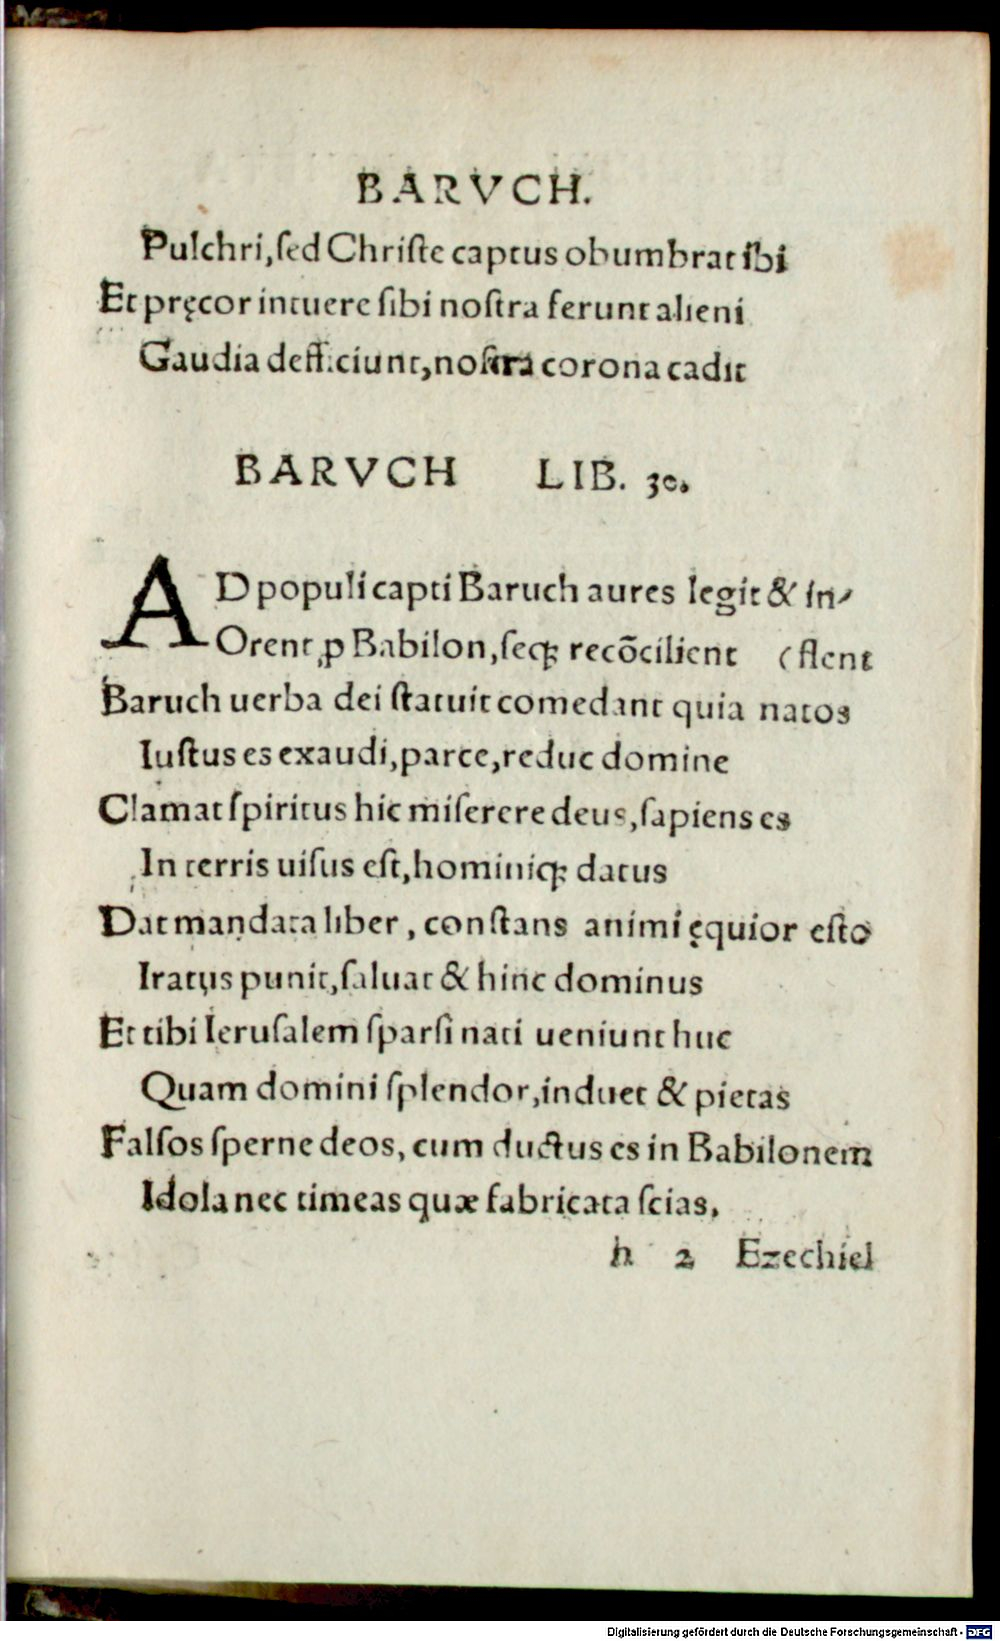 BARVCH.
Pulchri, ſed Chriſte captus obumbrat ibi
Et pręcor intuere ſibi noſtra ferunt alieni
Gaudia defficiunt, noſtra corona cadit
BARVCH LIB. 30.
AD populi capti Baruch aures legit & in-
Orent ꝓ Babilon, ſeqꝫ recõcilient (flent
Baruch uerba dei ſtatuit comedant quia natos
Iuſtus es exaudi, parce, reduc domine
Clamat ſpiritus hic miſerere deus, ſapiens es
In terris uiſus eſt, hominiqꝫ datus
Dat mandata liber, conſtans animi ęquior eſto
Iratus punit, ſaluat & hinc dominus
Et tibi Ieruſalem ſparſi nati ueniunt huc
Quam domini ſplendor, induet & pietas
Falſos ſperne deos, cum ductus es in Babilonem
Idola nec timeas quæ fabricata ſcias.
h 2 Ezechiel
Digitalisierung gefördert durch die Deutsche Forschungsgemeinschaft - DFG